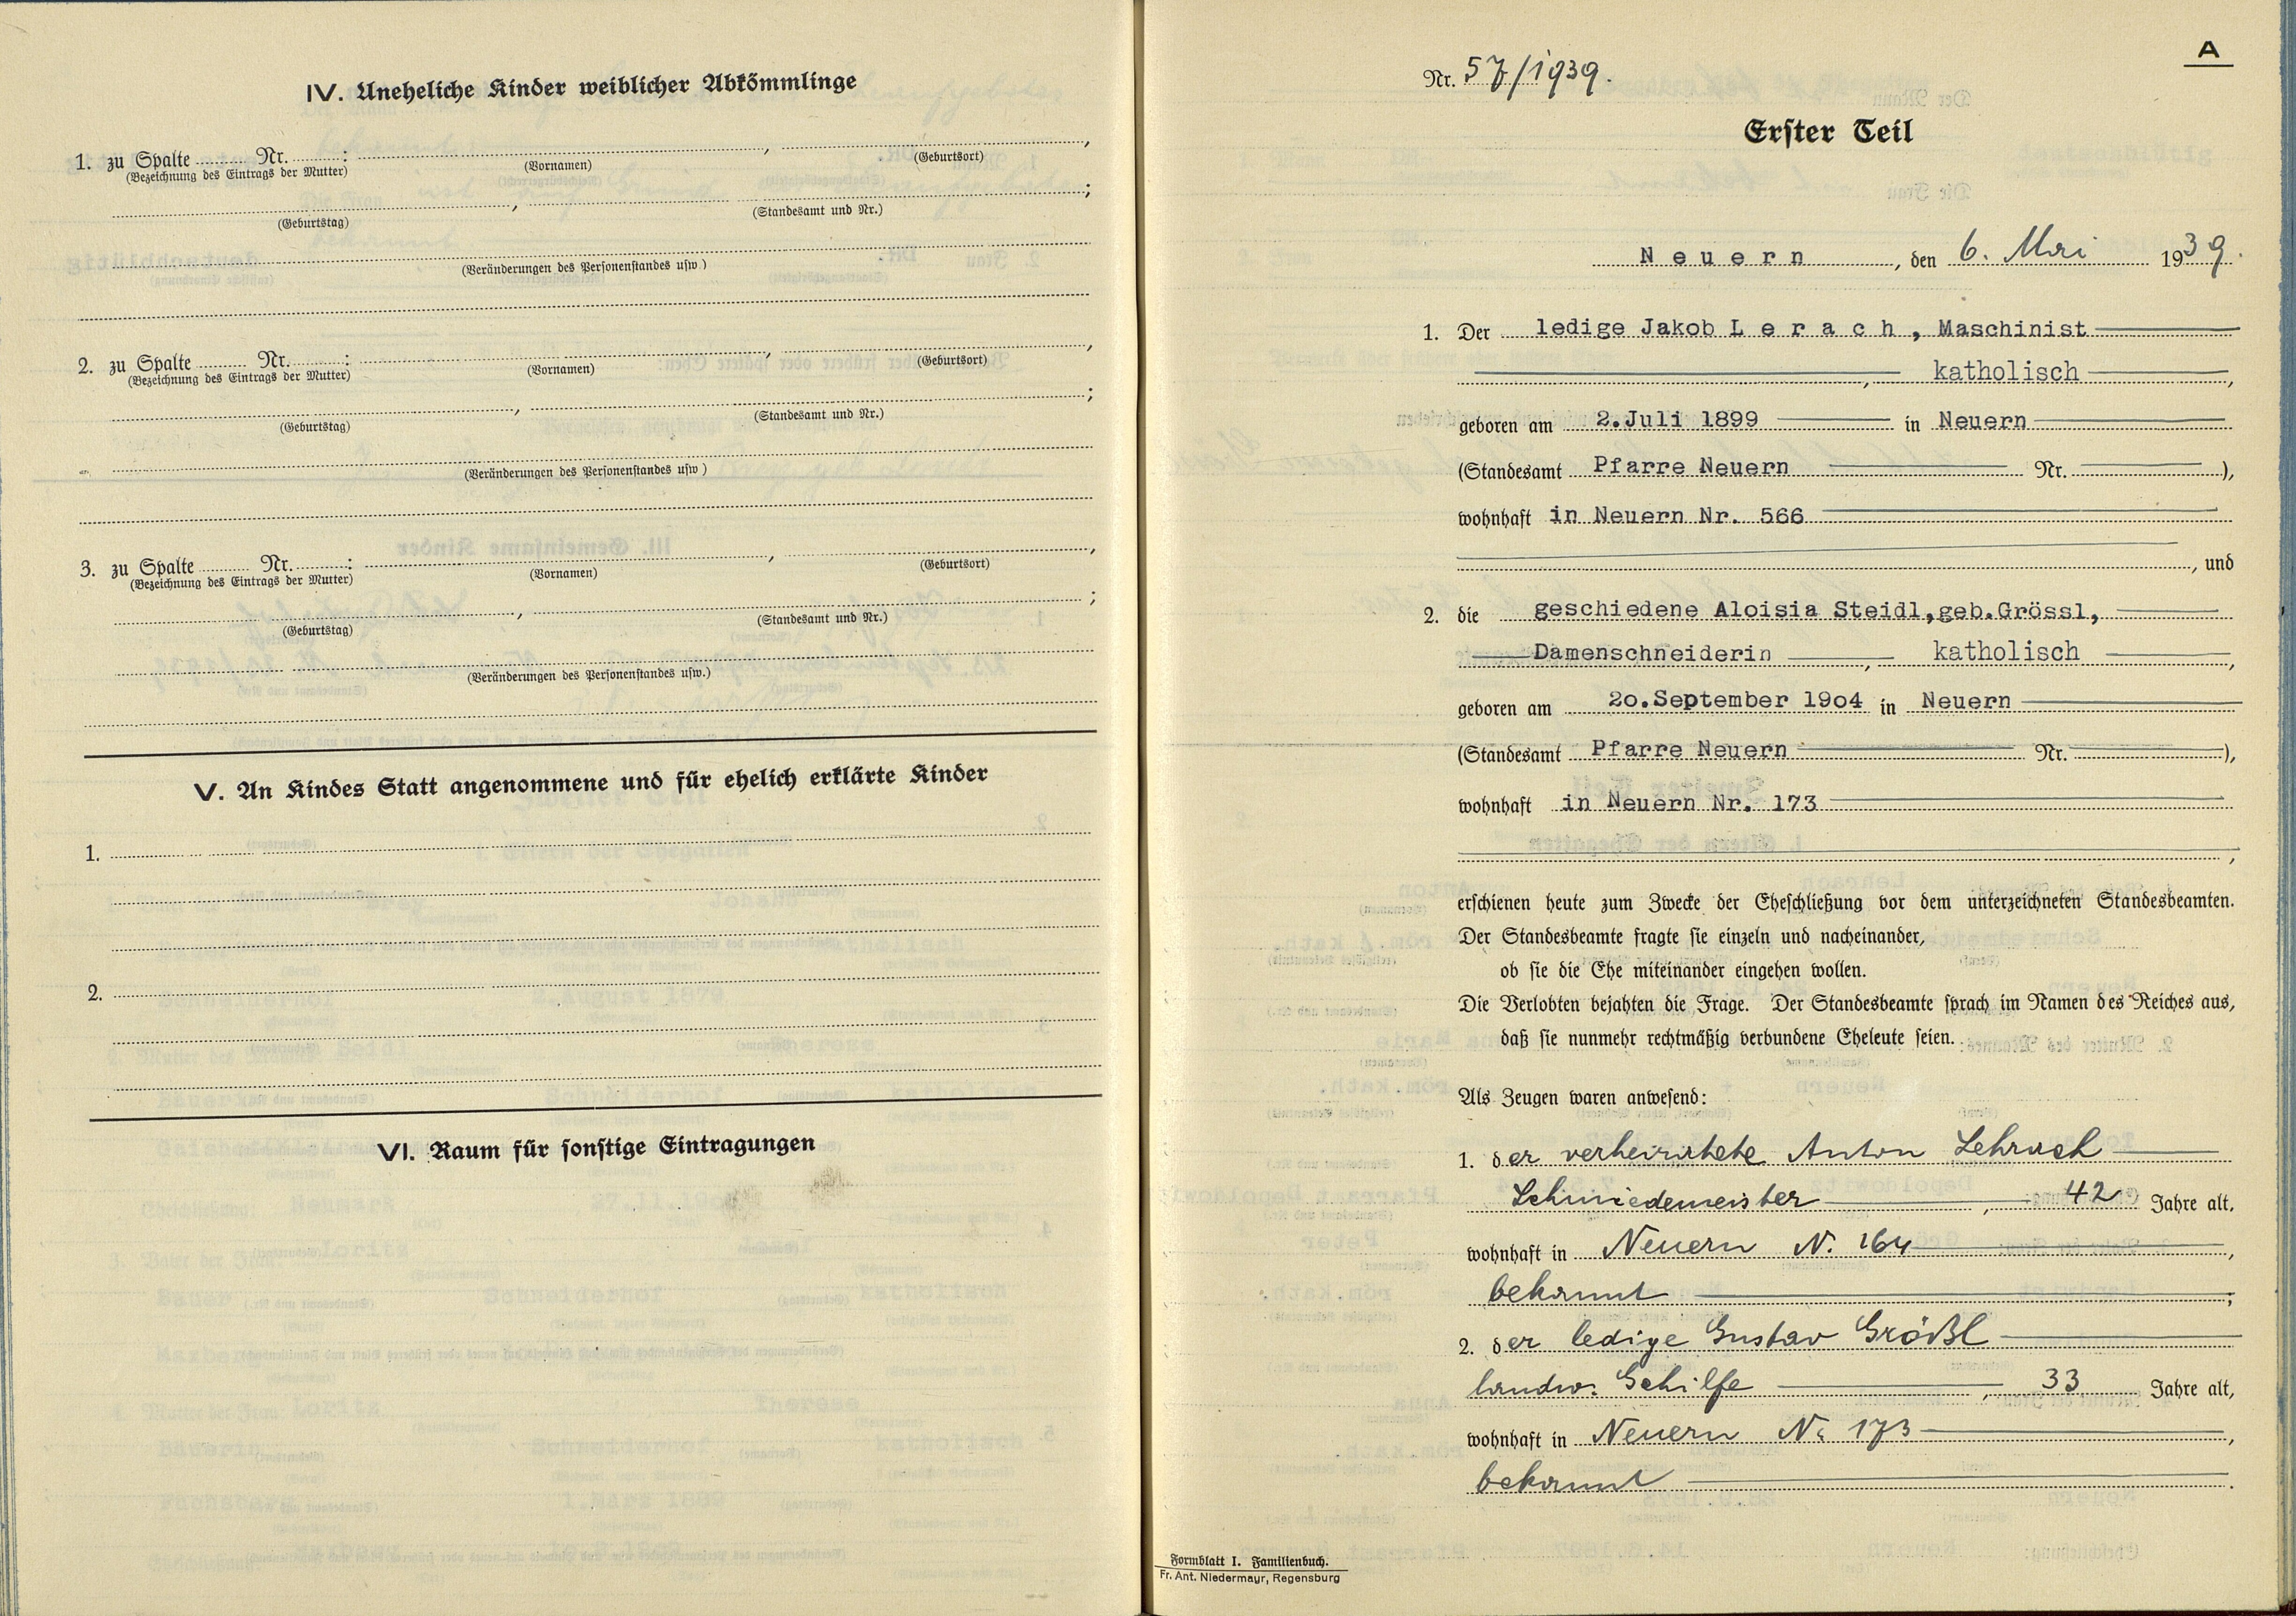 IV. Uneheliche Kinder weiblicher Abkömmlinge
1. zu Spalte Nr. : , ,
(Bezeichnung des Eintrags der Mutter) (Vornamen) (Geburtsort)
, ;
(Geburtstag) (Standesamt und Nr.)
(Veränderungen des Personenstandes usw.)
2. zu Spalte Nr. : , ,
(Bezeichnung des Eintrags der Mutter) (Vornamen) (Geburtsort)
, ;
(Geburtstag) (Standesamt und Nr.)
(Veränderungen des Personenstandes usw.)
3. zu Spalte Nr. : , ,
(Bezeichnung des Eintrags der Mutter) (Vornamen) (Geburtsort)
, ;
(Geburtstag) (Standesamt und Nr.)
(Veränderungen des Personenstandes usw.)
V. An Kindes Statt angenommene und für ehelich erklärte Kinder
1.
2.
VI. Raum für sonstige Eintragungen
A
Nr. 57/1939.
Erster Teil
Neuern, den 6. Mai 1939.
1. Der ledige Jakob Lerach, Maschinist
, katholisch ,
geboren am 2.Juli 1899 in Neuern
(Standesamt Pfarre Neuern Nr. ),
wohnhaft in Neuern Nr. 566
, und
2. die geschiedene Aloisia Steidl,geb.Grössl,
Damenschneiderin , katholisch ,
geboren am 20.September 1904 in Neuern
(Standesamt Pfarre Neuern Nr. ),
wohnhaft in Neuern Nr. 173
,
erschienen heute zum Zwecke der Eheschließung vor dem unterzeichneten Standesbeamten.
Der Standesbeamte fragte sie einzeln und nacheinander,
ob sie die Ehe miteinander eingehen wollen.
Die Verlobten bejahten die Frage. Der Standesbeamte sprach im Namen des Reiches aus,
daß sie nunmehr rechtmäßig verbundene Eheleute seien.
Als Zeugen waren anwesend:
1. der verheiratete Anton Lehrach
Schmiedemeister , 42 Jahre alt,
wohnhaft in Neuern N. 164 ,
bekannt ;
2. der ledige Gustav Größl
landw. Gehilfe , 33 Jahre alt,
wohnhaft in Neuern N. 173 ,
bekannt .
Formblatt I. Familienbuch.
Fr. Ant. Niedermayr, Regensburg